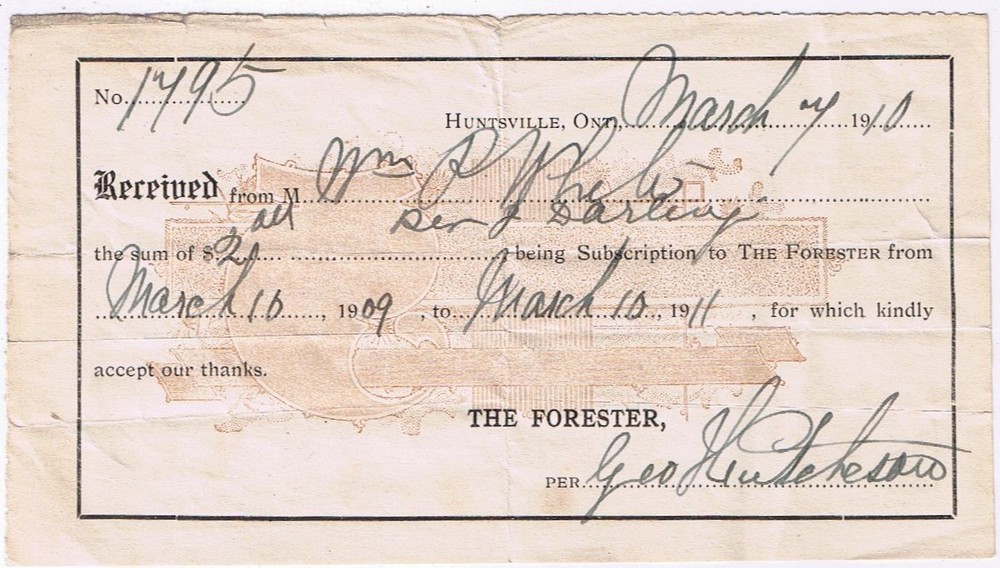 No. 1795
HUNTSVILLE, ONT., March 7 1910
Received from M Wm P White
Ben J Darling
the sum of $ 2 being Subscription to THE FORESTER from
March 10, 1909, to March 10, 1911, for which kindly
accept our thanks.
THE FORESTER,
PER Geo Hutcheson